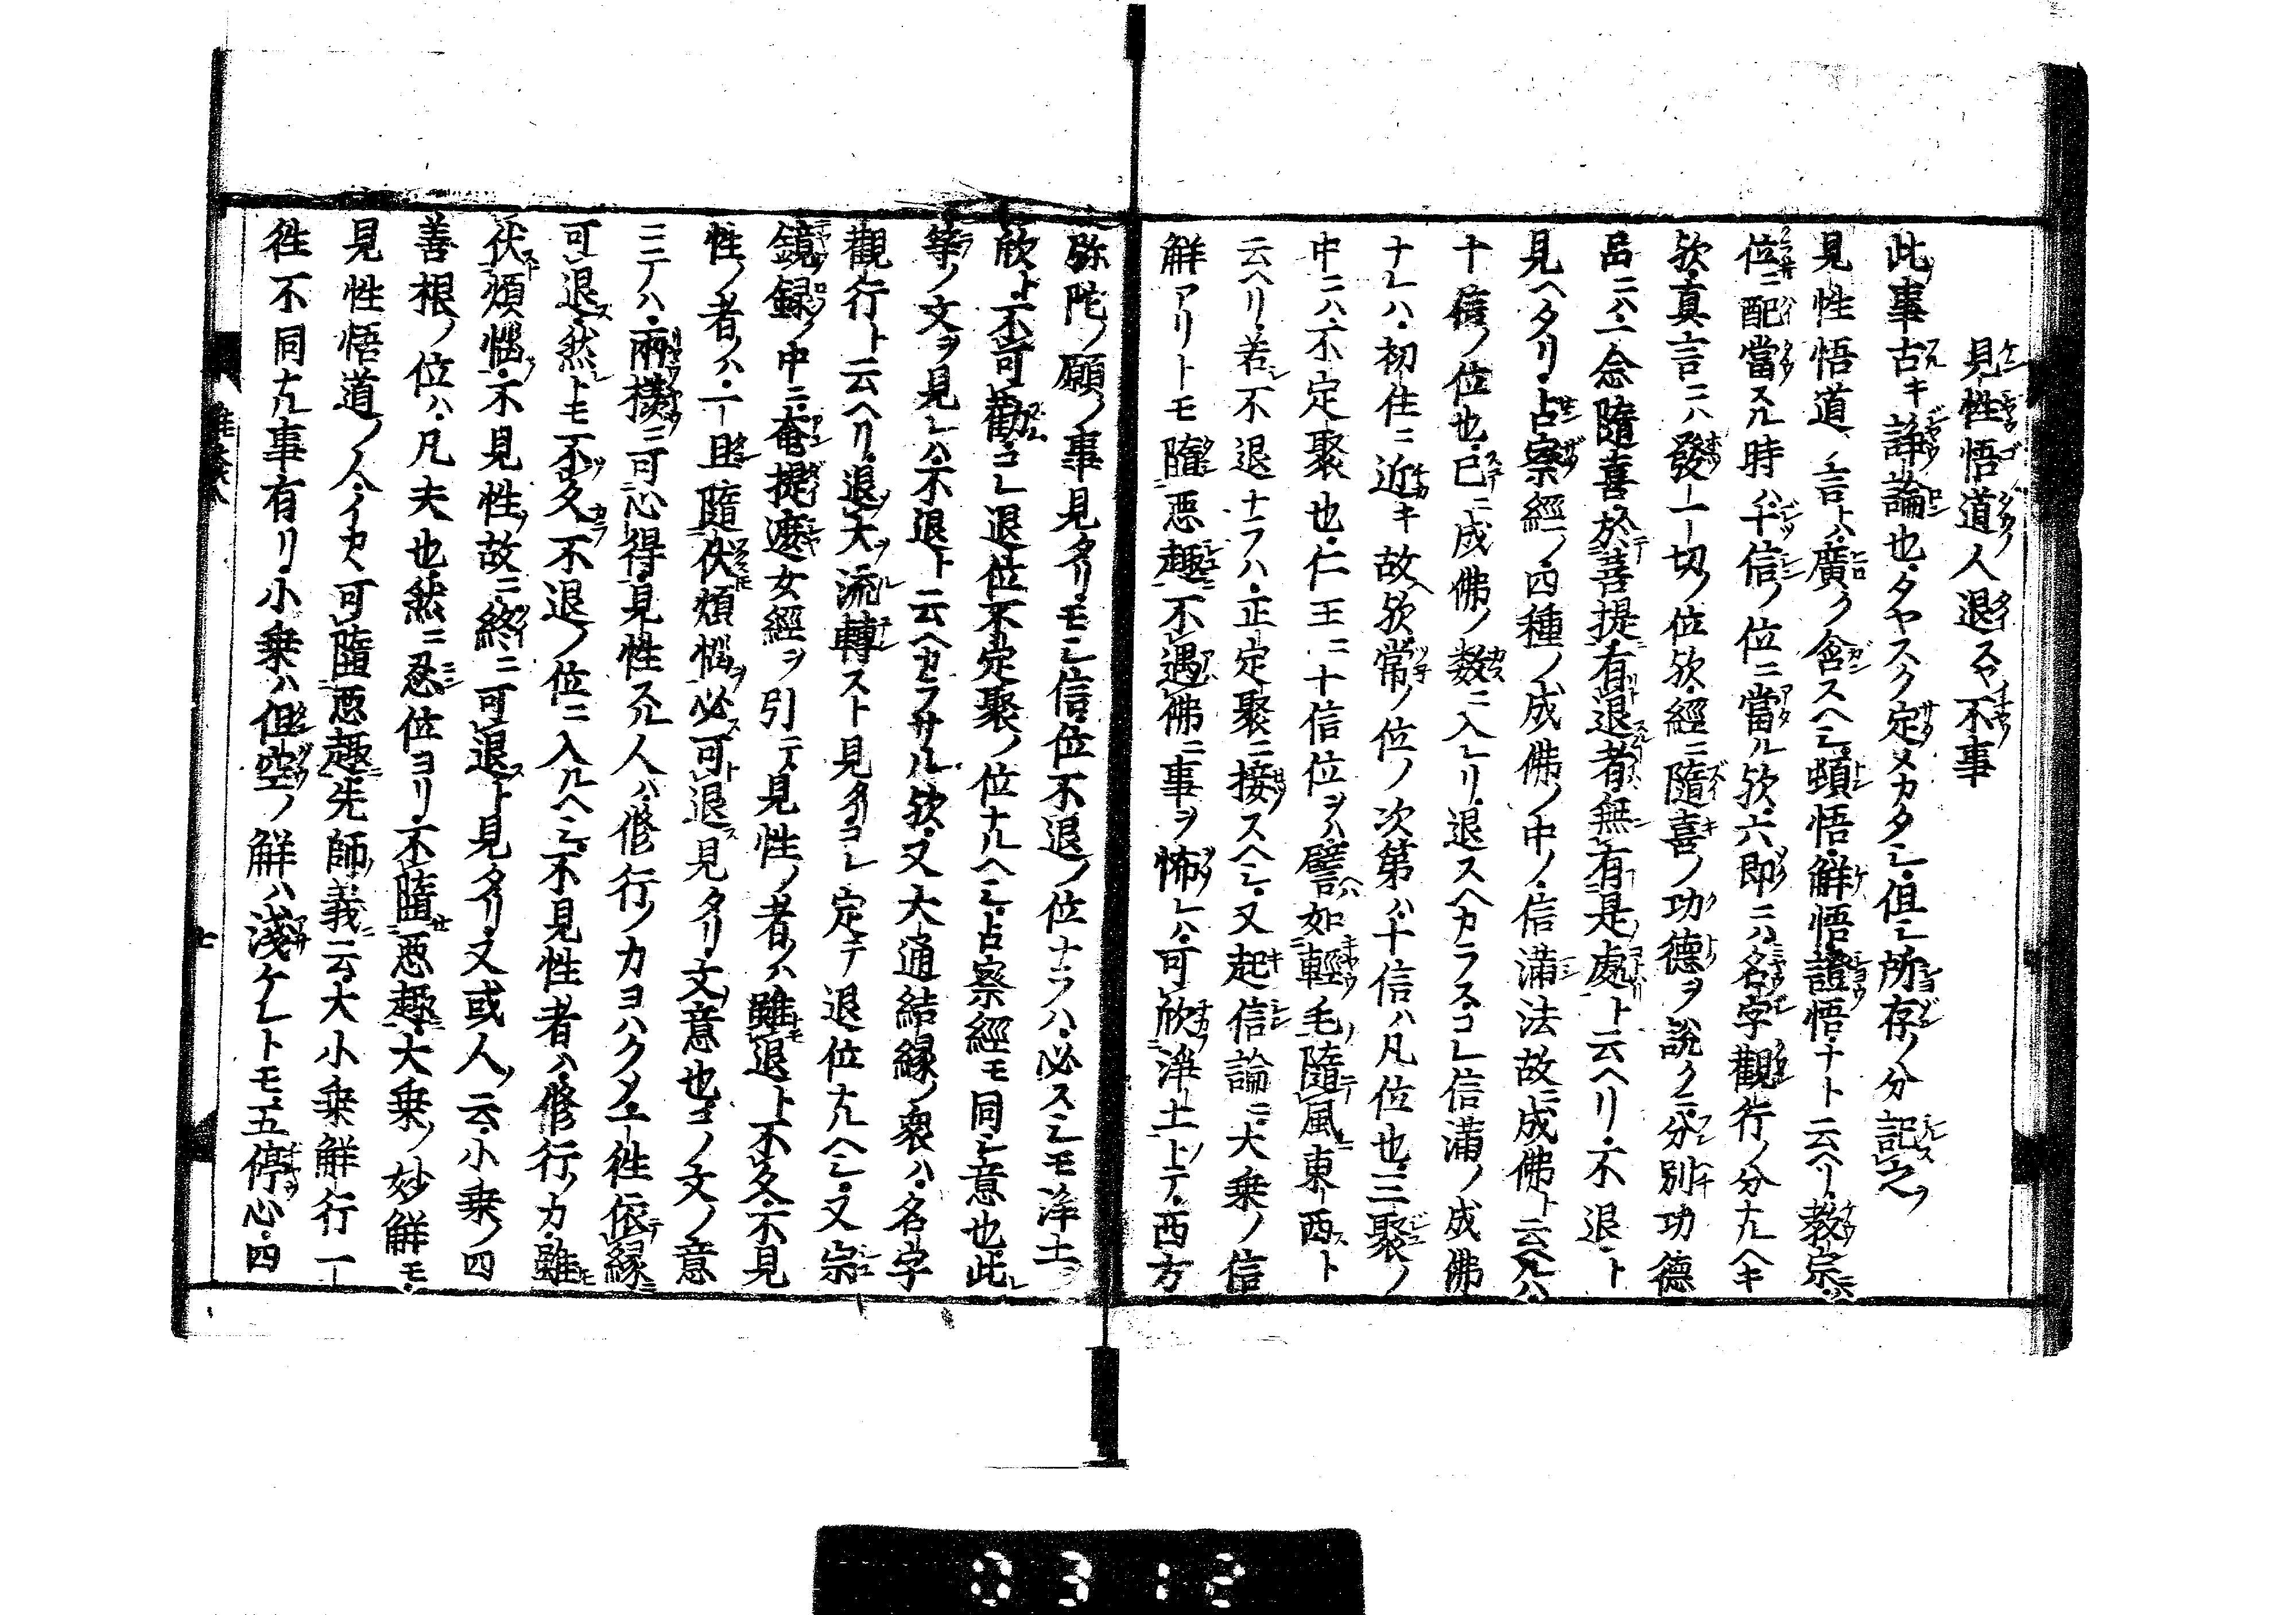 見性悟道人退スヤ不事
此事古キ諍論也・タヤスク定メカタシ・但シ所存ノ分記之
見性悟道ノ言ハ・廣ク含スヘシ・頓悟・解悟・證悟・ナト云ヘリ・教宗ニハ・
位ニ配當スル時ハ・十信ノ位ニ當ル欤・六即ニハ名字觀行ノ分ナルヘキ
欤・真言ニハ發一切ノ位欤・經ニ隨喜ノ功德ヲ說クニ・分別功德
品ニハ・一念隨喜・於菩提・有退者・無有是處ト云ヘリ・不退ト
見ヘタリ・占察經ノ・四種ノ成佛ノ中ノ・信滿法故ニ成佛ト云ヘルハ・
十信ノ位也・已ニ成佛ノ数ニ入レリ・退スヘカラス・コレ信滿ノ成佛
ナレハ・初住ニ近キ故欤・常ノ位ノ次第ハ・十信ハ凡位也・三聚ノ
中ニハ・不定聚也・仁王ニ十信位ヲハ・譬如輕毛隨風東西ト
云ヘリ・若不退ナラハ・正定聚ニ接スヘシ・又起信論ニ・大乗ノ信
解アリトモ墮悪趣不遇佛ニ事ヲ怖レハ・可欣淨土トテ・西方
弥陀ノ願ノ事見タリ・モシ信位不退ノ位ナラハ・必スシモ淨土ヲ
欣ト不可勸・コレ退位不定聚ノ位ナルヘシ・占察經モ同シ意也・此
等ノ文ヲ見レハ・不退ト云ヘカラサル欤・又大通結縁ノ衆ハ・名字
觀行ト云ヘリ・退大流轉スト見タリ・コレ定テ退位ナルヘシ・又宗
鏡録ノ中ニ・奄提遮女經ヲ引テ・見性ノ者ノハ・雖退ト不久・不見
性ノ者ノハ・一旦隨伏煩惱必可退ス見タリ・文意也・コノ文ノ意
ニテハ・兩樣ニ可心得・見性スル人ハ・修行ノカヨハクメ・一往依縁
可退然トモ不久不退ノ位ニ入ルヘシ・不見性者ハ・修行ノ力・雖
伏煩惱・不見性故ニ・終ニ可退ト見タリ・又或人ノ云・小乗ノ四
善根ノ位ハ・凡夫也然ニ忍位ヨリ・不墮悪趣・大乗ノ妙解モ・
見性悟道ノ人・イカヽ可墮悪趣・先師ノ義ニ云・大小乗解行一
徃不同ナル事有リ・小乗ハ但空ノ解ハ・淺ケレトモ・五停心・四
七